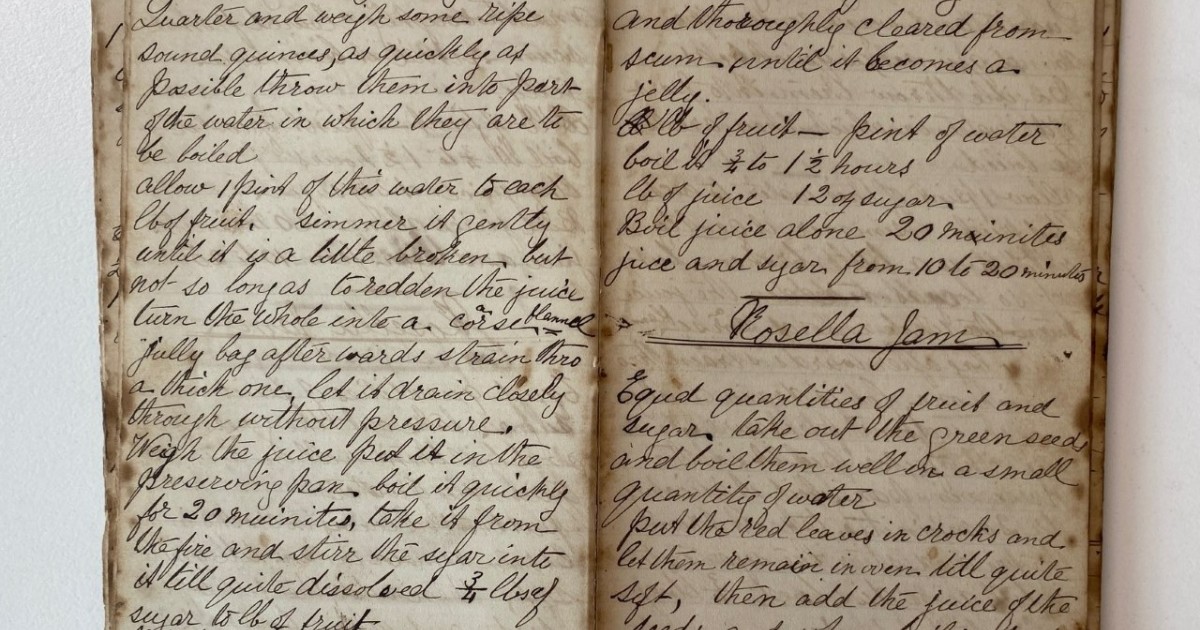 Quarter and weigh some ripe
sound quinces, as quickly as
possible throw them into part
of the water in which they are to
be boiled
allow 1 pint of this water to each
lb of fruit. simmer it gently
until it is a little broken but
not so long as to redden the juice
turn the whole into a corse flannel
jully bag after wards strain thro
a thick one, let it drain closely
through without pressure.
Weigh the juice put it in the
preserving pan boil it quickly
for 20 muinites, take it from
the fire and stirr the sgar into
it till quite dissolved 3/4 lbs of
sugar to lb of fruit
and thoroughly cleared from
scum until it becomes a
jelly.
lb of fruit — pint of water
boil it 3/4 to 1 1/2 hours
lb of juice 12 oz sugar
Boil juice alone 20 muinites
juce and sgar from 10 to 20 minutes
Rosella Jam
Equal quantities of fruit and
sugar take out the green seeds
and boil them well in a small
quantity of water
put the red leaves in crocks and
let them remain in oven till quite
soft, then add the juice of the